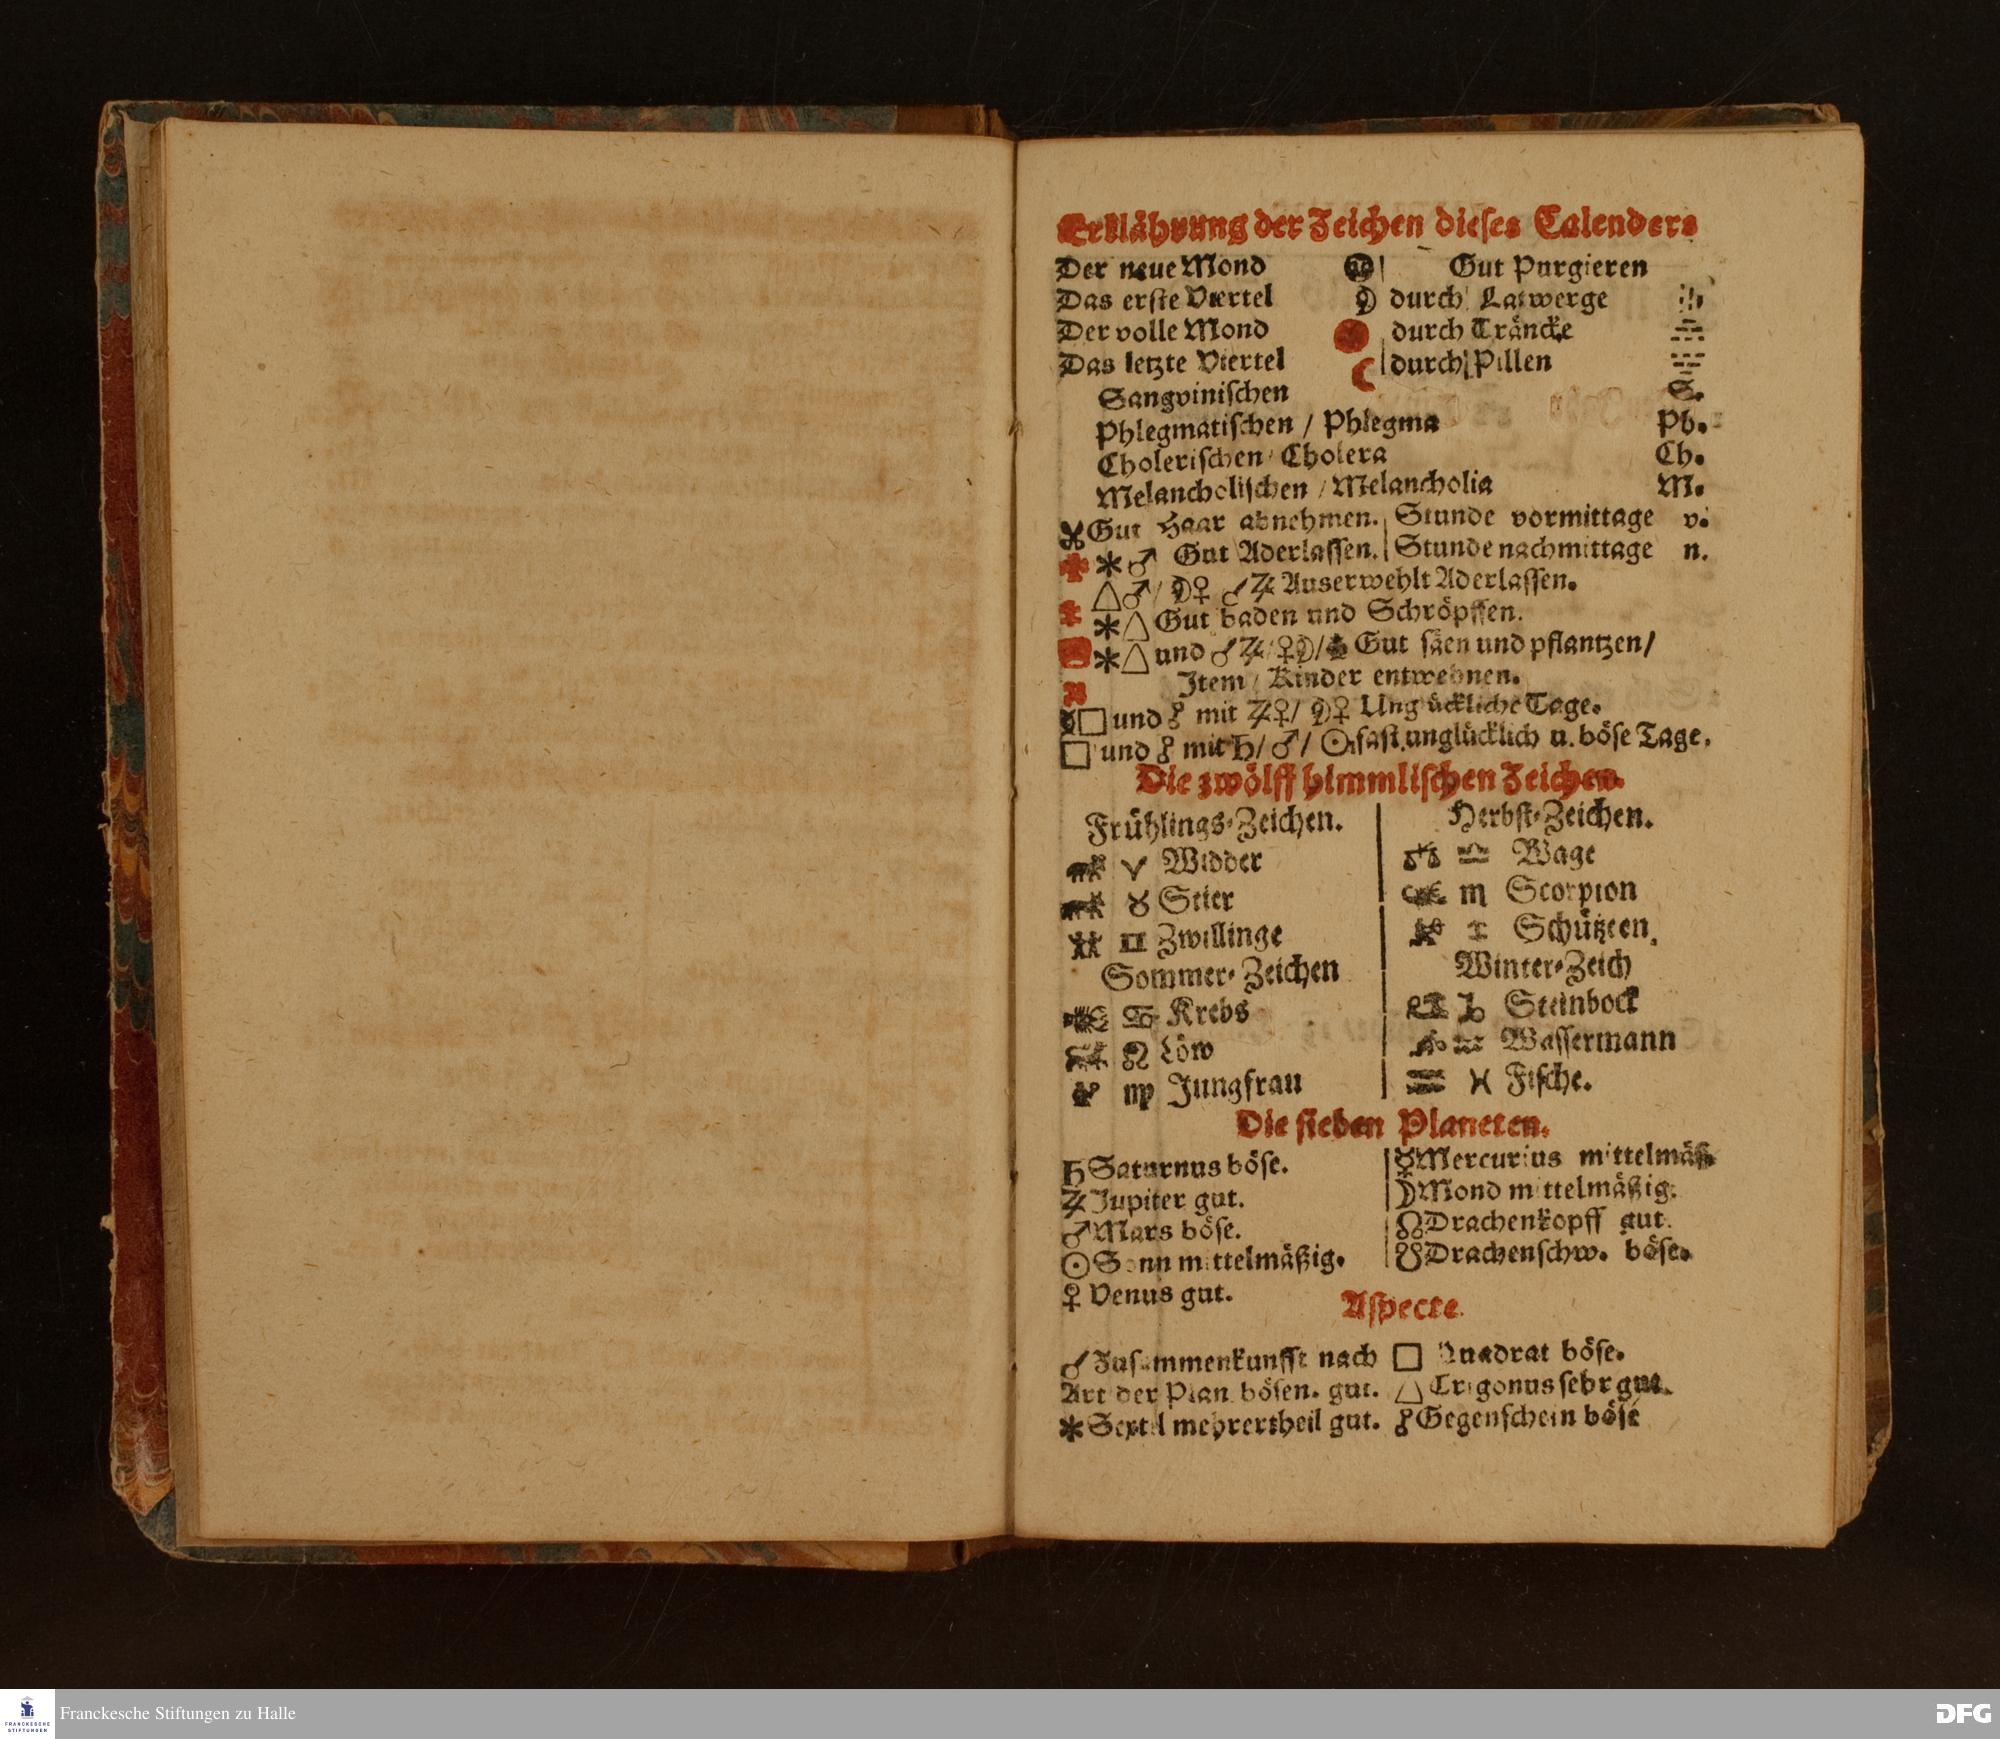 Erklährung der Zeichen dieses Calenders
Der neue Mond
Das erste Viertel
Der volle Mond
Das letzte Viertel
Gut Purgieren
durch Latwerge
durch Träncke
durch Pillen
Sangvinischen S.
Phlegmatischen / Phlegma Ph.
Cholerischen / Cholera Ch.
Melancholischen / Melancholia M.
Gut Haar abnehmen. Stunde vormittage v.
✱ ♂ Gut Aderlassen. Stunde nachmittage n.
△ ♂ / ☽ ♀ ☌ ♃ Auserwehlt Aderlassen.
✱ △ Gut baden und Schröpffen.
✱ △ und ☌ ♃ / ♀ ☽ / Gut säen und pflantzen /
Item / Kinder entwehnen.
□ und ☍ mit ♃ ♀ / ☽ ♀ Unglückliche Tage.
□ und ☍ mit ♄ / ♂ / ☉ fast unglücklich u. böse Tage.
Die zwölff himmlischen Zeichen.
Frühlings-Zeichen.
♈ Widder
♉ Stier
♊ Zwillinge
Sommer-Zeichen
♋ Krebs
♌ Löw
♍ Jungfrau
Herbst-Zeichen.
♎ Wage
♏ Scorpion
♐ Schützen.
Winter-Zeich
♑ Steinbock
♒ Wassermann
♓ Fische.
Die sieben Planeten.
♄ Saturnus böse.
♃ Jupiter gut.
♂ Mars böse.
☉ Sonn mittelmäßig.
♀ Venus gut.
☿ Mercurius mittelmäß.
☽ Mond mittelmäßig.
☊ Drachenkopff gut.
☋ Drachenschw. böse.
Aspecte.
☌ Zusammenkunfft nach
Art der Plan. bösen. gut.
✱ Sextil mehrertheil gut.
□ Quadrat böse.
△ Trigonus sehr gut.
☍ Gegenschein böse
Franckesche Stiftungen zu Halle
FRANCKESCHE
STIFTUNGEN
DFG